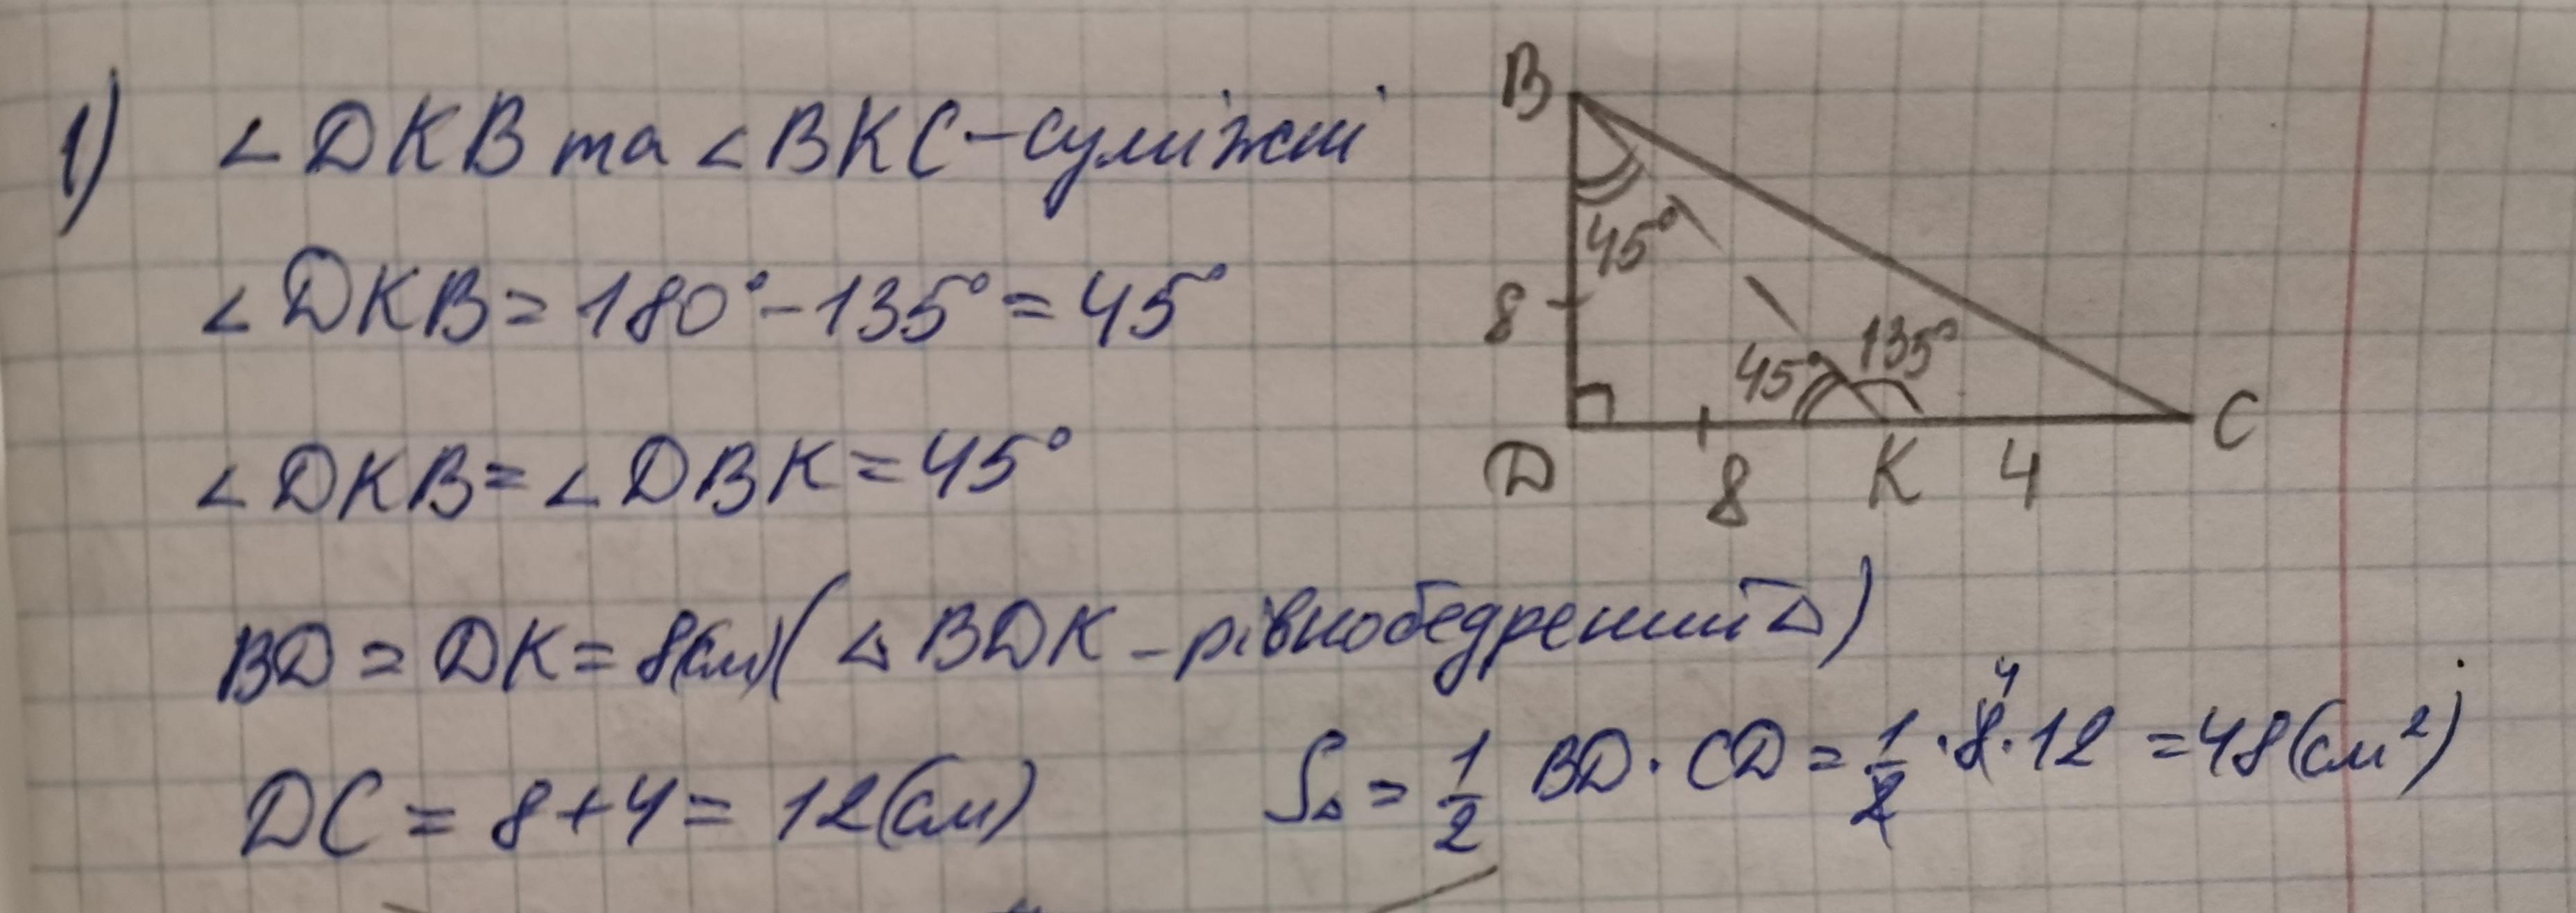 1) ∠DKB та ∠BKC – суміжні
∠DKB = 180° – 135° = 45°
∠DKB = ∠DBK = 45°
BD = DK = 8(см) (△ BDK – рівнобедрений △)
DC = 8 + 4 = 12(см)
S△ = 1/2 BD · CD = 1/2 · 8 · 12 = 48(см²)
4
B
45°
8
45° 135°
D 8 K 4 C